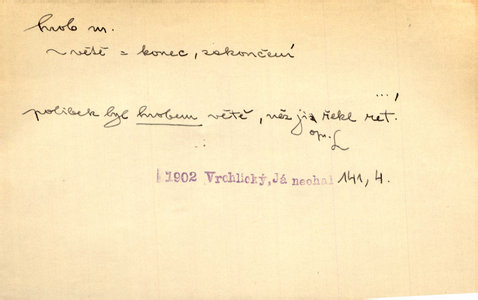 hrob m.
~ větě = konec, zakončení
polibek byl hrobem větě, než ji řekl ret. ...,
op. L
1902 Vrchlický, Já nechal 141, 4.